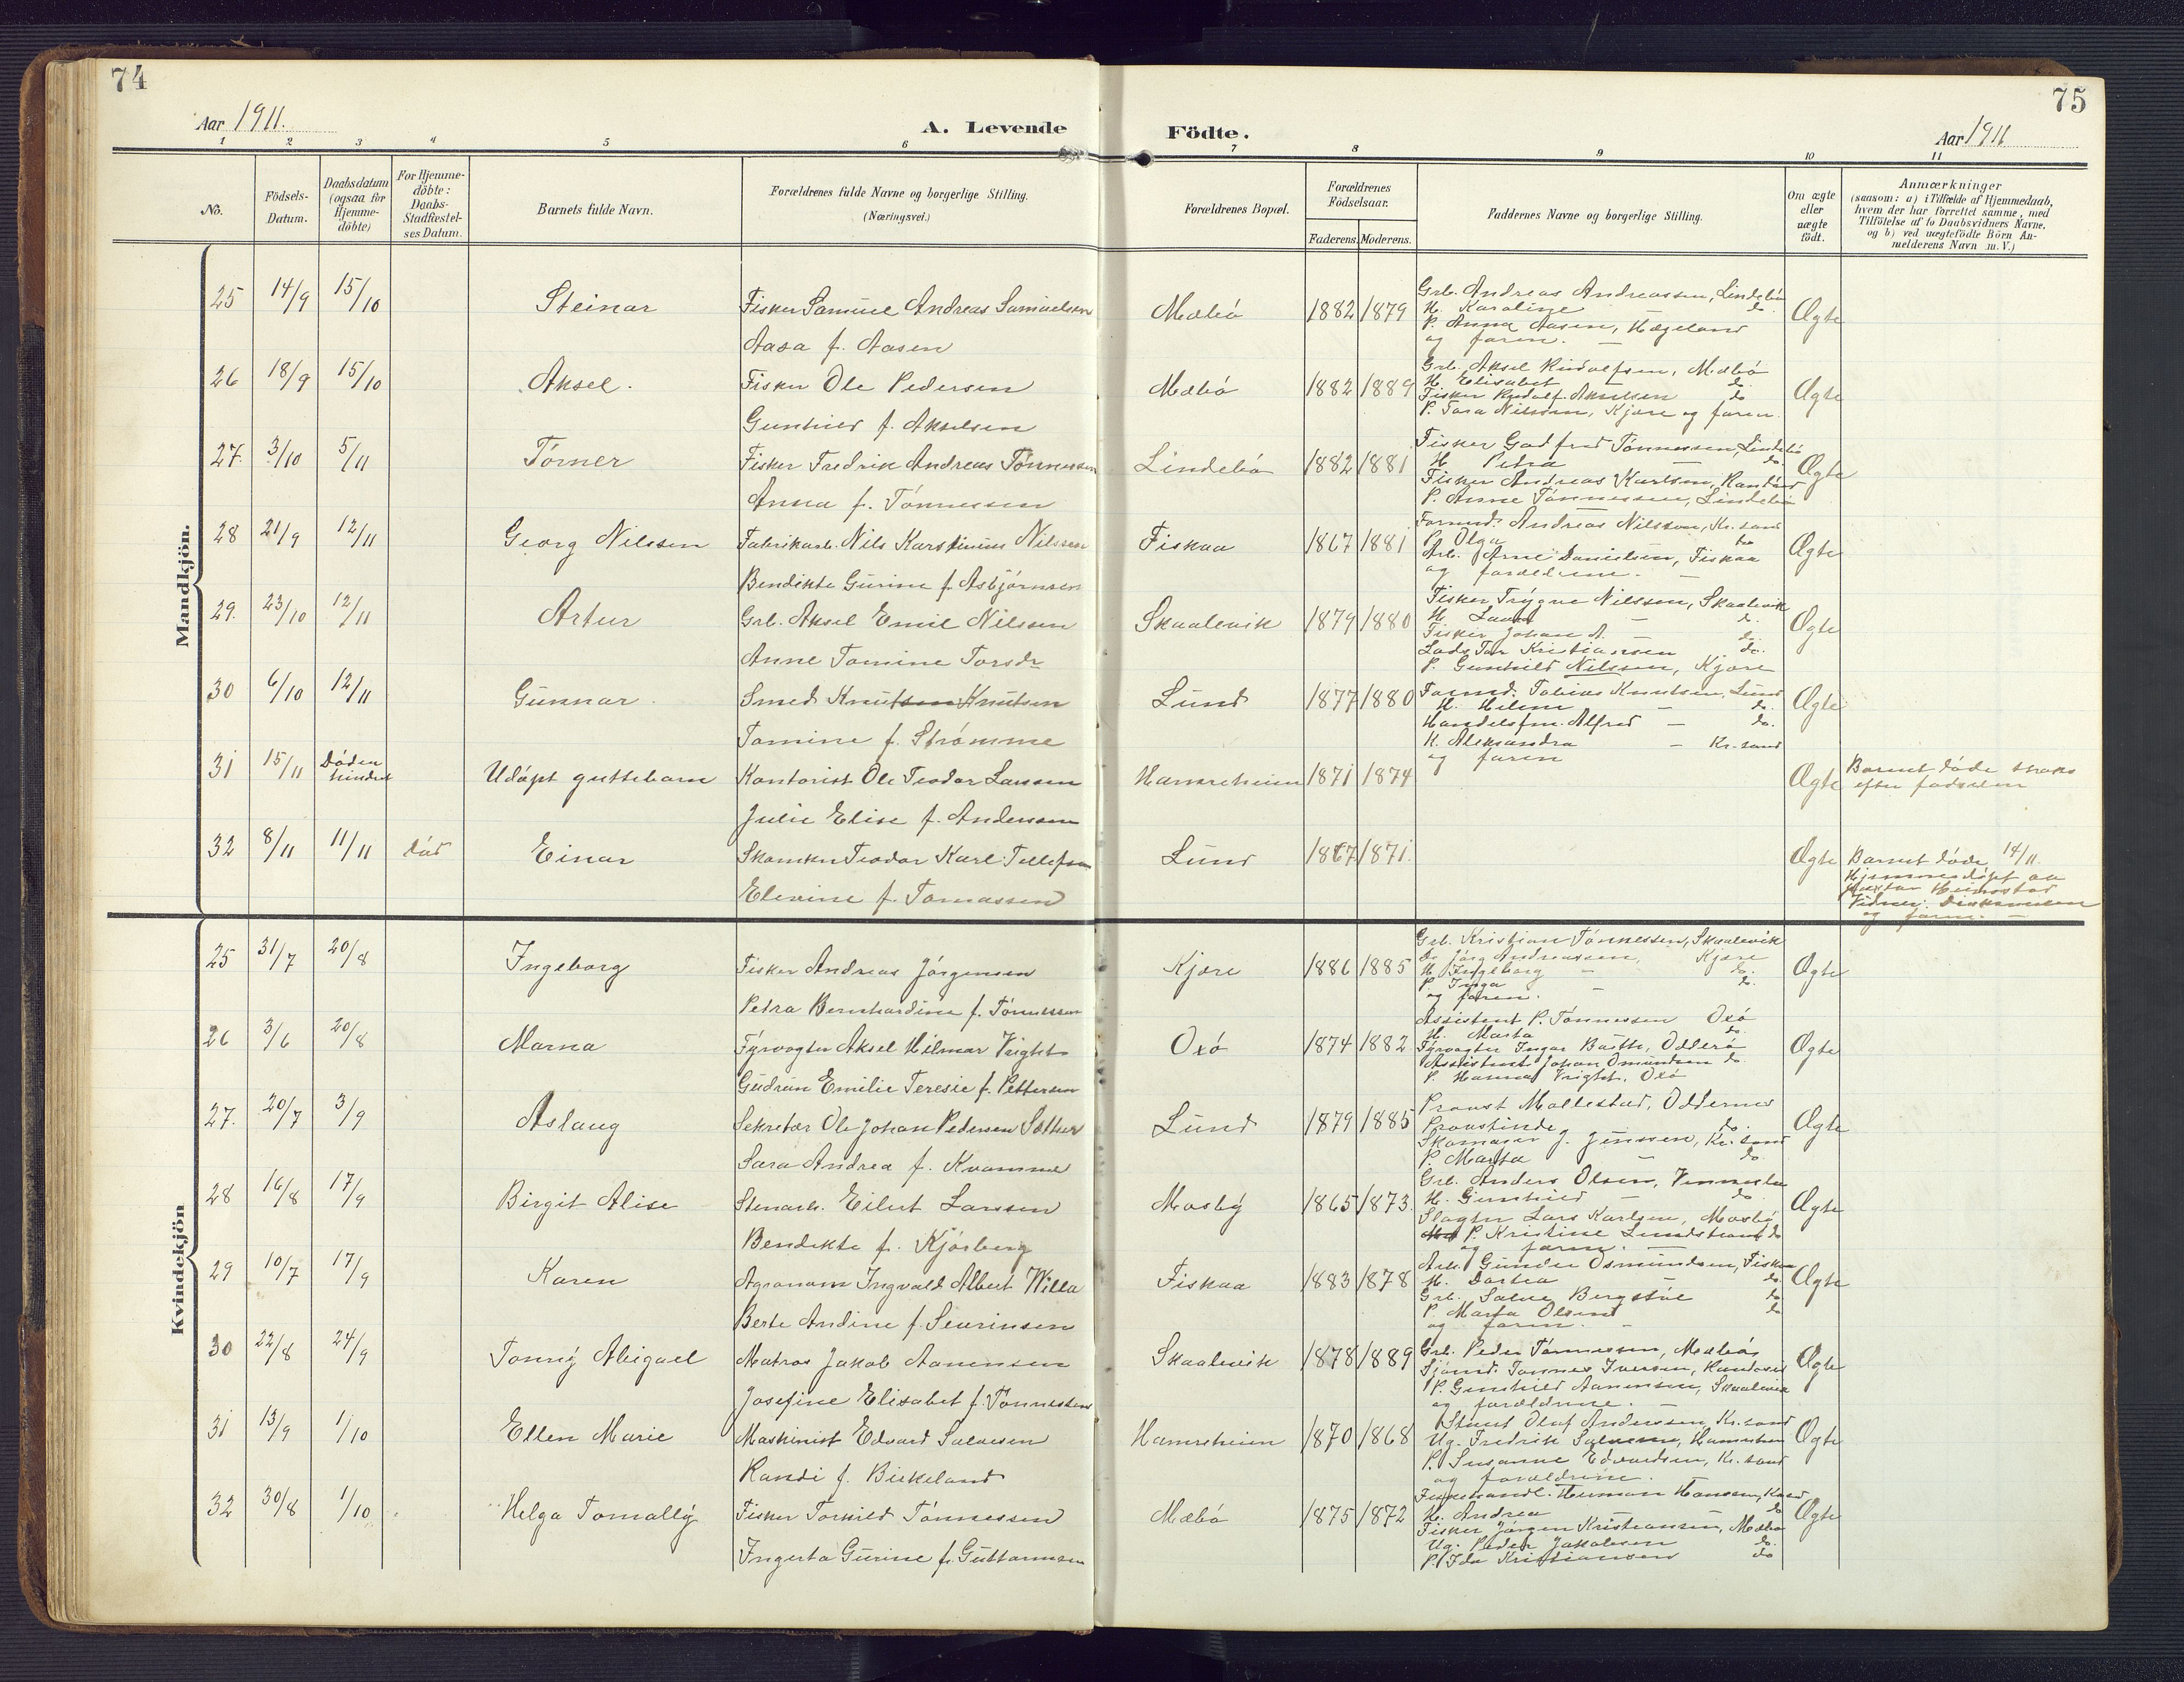 74
75
Aar 1911.
A. Levende
Födte.
Aar 1911
1 2 3 4 5 6 7 8 9 10 11
No.
Födsels-
Datum.
Daabsdatum
(ogsaa for
Hjemme-
döbte)
For Hjemme-
döbte:
Daabs-
Stadfæstel-
ses Datum.
Barnets fulde Navn.
Forældrenes fulde Navne og borgerlige Stilling.
(Næringsvei.)
Forældrenes Bopæl.
Forældrenes
Födselsaar.
Faderens. Moderens.
Faddernes Navne og borgerlige Stilling.
Om ægte
eller
uægte
födt.
Anmærkninger
(saasom: a) i Tilfælde af Hjemmedaab,
hvem der har forrettet samme, med
Tilföielse af to Daabsvidners Navne,
og b) ved uægtefödte Börn An-
melderens Navn m. V.)
Mandkjön.
25 14/9 15/10 Steinar
Fisker Samuel Andreas Samuelsen
Aasa f. Aasen
Mæbö 1882 1879
Grb. Andreas Andreassen, Lindebö
H. Karoline — do
P. Anna Aasen, Hægeland
og faren. —
Ægte
26 18/9 15/10 Aksel.
Fisker Ole Pedersen
Gunhild f. Akselsen
Mæbö 1882 1889
Grb. Aksel Rudolfsen, Mæbö
H. Elisabet — do.
Fisker Rudolf Akselsen do
P. Tora Nilssen, Kjære og faren.
Ægte
27. 3/10 5/11 Törner
Fisker Fredrik Andreas Tönnessen
Anna f. Tönnessen
Lindebö 1882 1881
Fisker Godfred Tönnessen, Lindebö
H. Petra — do.
Fisker Andreas Karlsen, Randösd
P. Anne Tönnessen, Lindebö
Ægte
28 21/9 12/11 Georg Nilssen
Fabrikarb. Nils Karstinius Nilssen
Bendikte Gurine f. Asbjörnsen
Fiskaa 1867 1881
Formd. Andreas Nilsson, Kr.sand
P. Olga do
Arb. Arne Danielsen, Fiskaa
og forældrene. —
Ægte
29. 23/10 12/11 Artur
Grb. Aksel Emil Nilssen
Anne Tomine Torsdr
Skaalevik 1879 1880
Fisker Trygve Nilssen, Skaalevik
H. Laura — do.
Fisker Johan A. — do.
Lods Tor Kristiansen do.
P. Gunhild Nilssen, Kjære
Ægte
30 6/10 12/11 Gunnar.
Smed Knutsen Knutsen
Tomine f. Strømme
Lund 1877 1880
Formd. Tobias Knutsen, Lund
H. Helene — do.
Handelsfm. Alfred — do.
H. Aleksandra — Kr.sand
og faren
Ægte
31 15/11 Döden hindret Udöpt guttebarn
Kontorist Ole Teodor Larssen
Julie Elise f. Anderssen
Hamreheim 1871 1874
Ægte
Barnet döde straks
efter fødselen
32 8/11 11/11 död Einar
Skomker Teodor Karl Tellefsen
Elevine f. Tomassen
Lund 1867 1871.
Ægte
Barnet döde 14/11.
Hjemmedöpt av
Vidner:
og faren. —
Kvindekjön
25 31/7 20/8 Ingeborg
Fisker Andreas Jörgensen
Petra Bernhardine f. Tönnessen
Kjære 1886 1885
Grb. Kristian Tönnessen, Skaalevik
Do Jörg Andreassen, Kjære
H. Ingeborg — do.
P. Inga — do.
og faren.
Ægte
26 3/6 20/8 Marna
Fyrvogter Aksel Hilmar Vright
Gudrun Emilie Teresie f. Pettersen
Oxö 1874 1882
Assistent P. Tönnessen Oxö
H. Marta do.
Fyrvogter Ingar Basthe, Odderö
Assistent Johan Omundsen do
P. Hanna Vright, Oxö
Ægte
27. 20/7 3/9 Aslaug
Sekretær Ole Johan Pedersen Sæther
Sara Andrea f. Kvamme
Lund 1879 1885
Provst Mollestad, Oddernes
Provstinde do.
Skomager J. Jenssen, Kr.sand
P. Marta — do.
Ægte
28 16/8 17/9 Birgit Alise
Stenarb. Eilert Larssen
Bendikte f. Kjösberg
Mosby 1865 1873.
Grb. Anders Olsen, Vennesla
H. Gunhild — do
Slagter Lars Karlsen, Mosby
P. Kristine Lundstrøm do
og faren. —
Ægte
29 10/7 17/9 Karen
Agronom Ingvald Albert Willa
Berte Andine f. Severinsen
Fiskaa 1883 1878
Arb. Gunder Osmundsen, Fiskaa
H. Dortea — do.
Grb. Salve Bergstöl do
P. Marta Olsen do
og faren. —
Ægte
30 22/8 24/9 Tonny Abigael
Matros Jakob Aanensen
Josefine Elisabet f. Tönnessen
Skaalevik 1878 1889
Grb. Peder Tönnessen, Mæbö
Sjömd. Tønnes Iversen, Randøsd
P. Gunhild Aanensen, Skaalevik
og forældrene. —
Ægte
31 13/9 1/10 Ellen Marie
Maskinist Edvard Salvesen
Randi f. Birkeland
Hamreheim 1870 1868
Stuert Oluf Anderssen, Kr.sand
Ug. Fredrik Salvesen, Hamreheim
P. Susanne Edvardsen, Kr.sand
og forældrene.
Ægte
32 30/8 1/10 Helga Tomally
Fisker Torkild Tönnessen
Ingerta Gurine f. Guttormsen
Mæbö 1875 1872
Fiskehandl. Herman Hansen, Kr.sd
H. Andrea — do
Fisker Jörgen Kristiansen, Mæbö
Ug. Peder Jakobsen do.
P. Ida Kristiansen do
Ægte